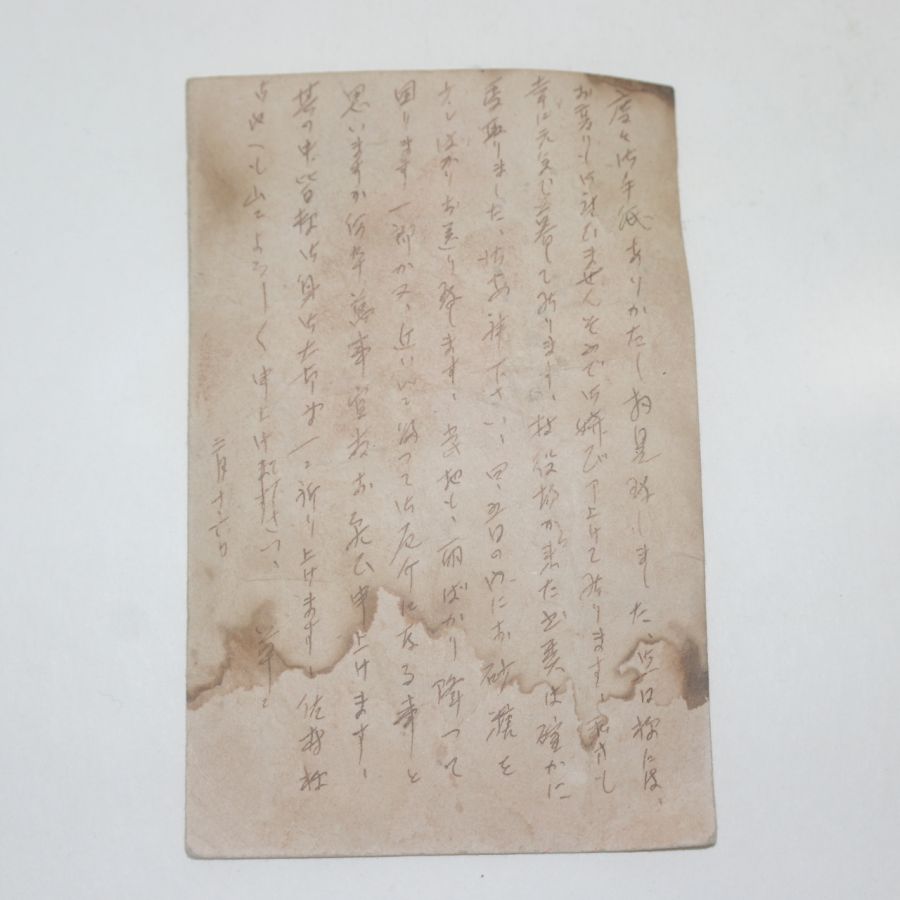 度々御手紙ありがたく拝見致しました、皆々様には、
お変りも御座いませんそうで御喜び申上げて居ります、私も
幸に元気で暮して居ります、村役場から来た書類は確かに
受取りました、御安神下さい、四五日の内にお砂糖を
少しばかりお送り致します、当地も、雨ばかり降って
困ります、一郎が又、近いに行って御厄介になる事と
思いますが何卒萬事宜敷お願い申上げます、
其の中皆様御身御大切に祈り上げます、佐
も山々よろしく申上げ
二月十六日
草々